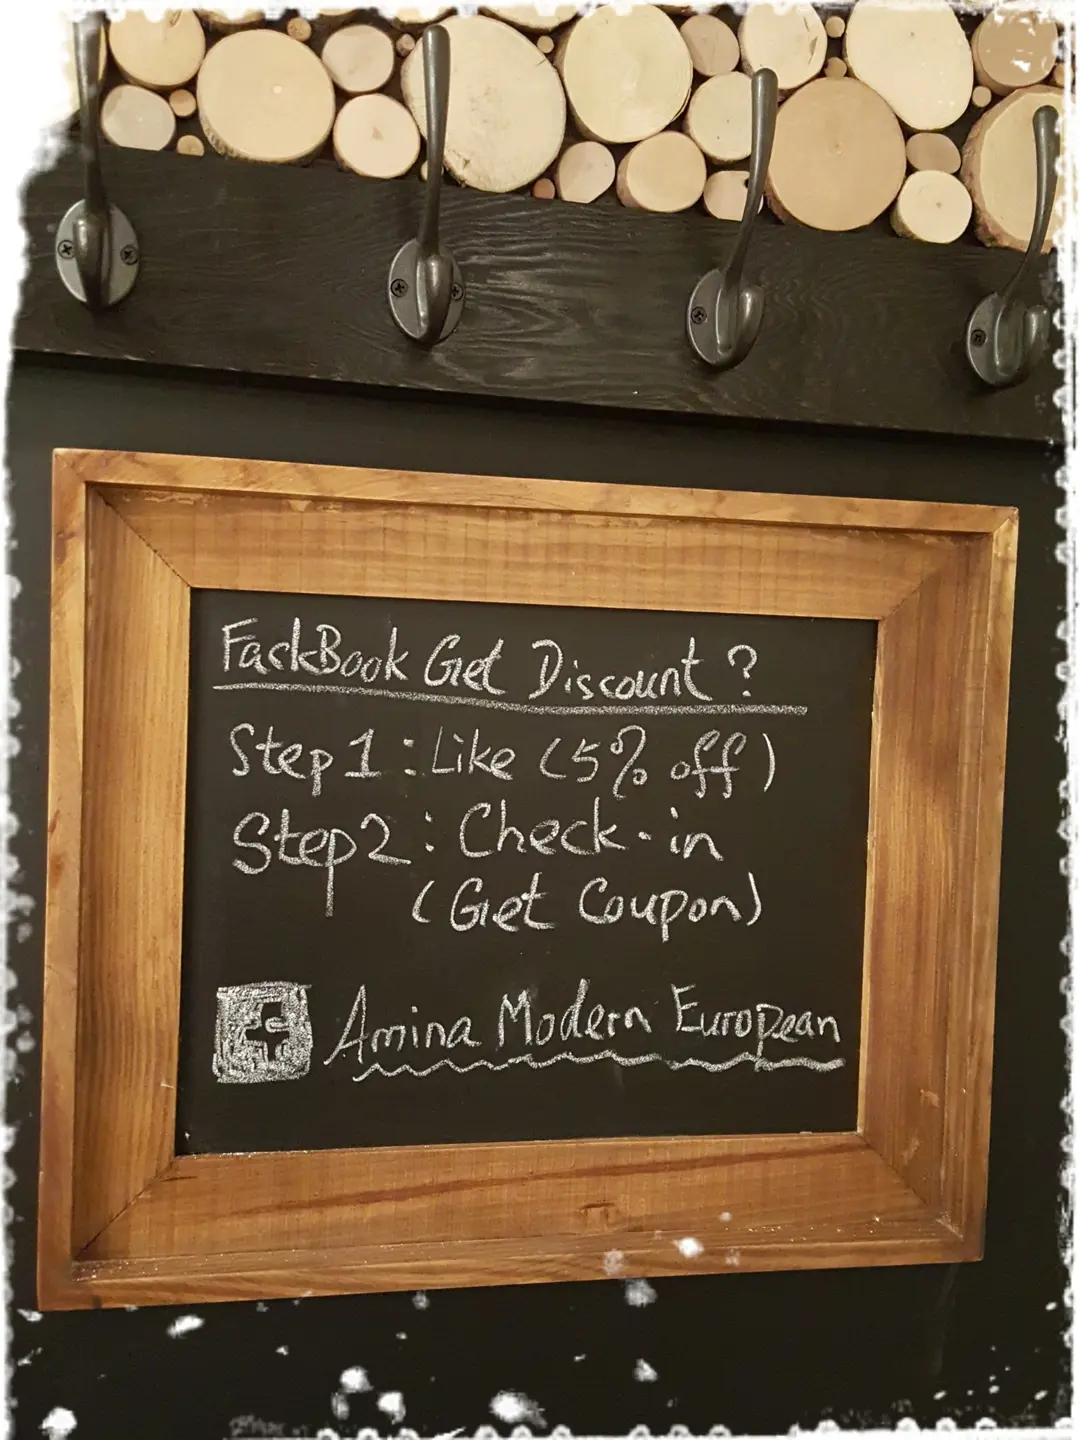 FackBook Get Discount ?
Step 1 : Like (5% off)
Step 2 : Check-in
(Get Coupon)
Amina Modern European